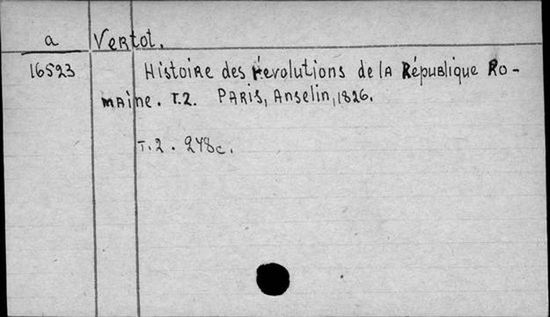 a Vertot.
16523 Histoire des révolutions de la République Ro-
maine. T.2. Paris, Anselin, 1826.
T.2. 248c.